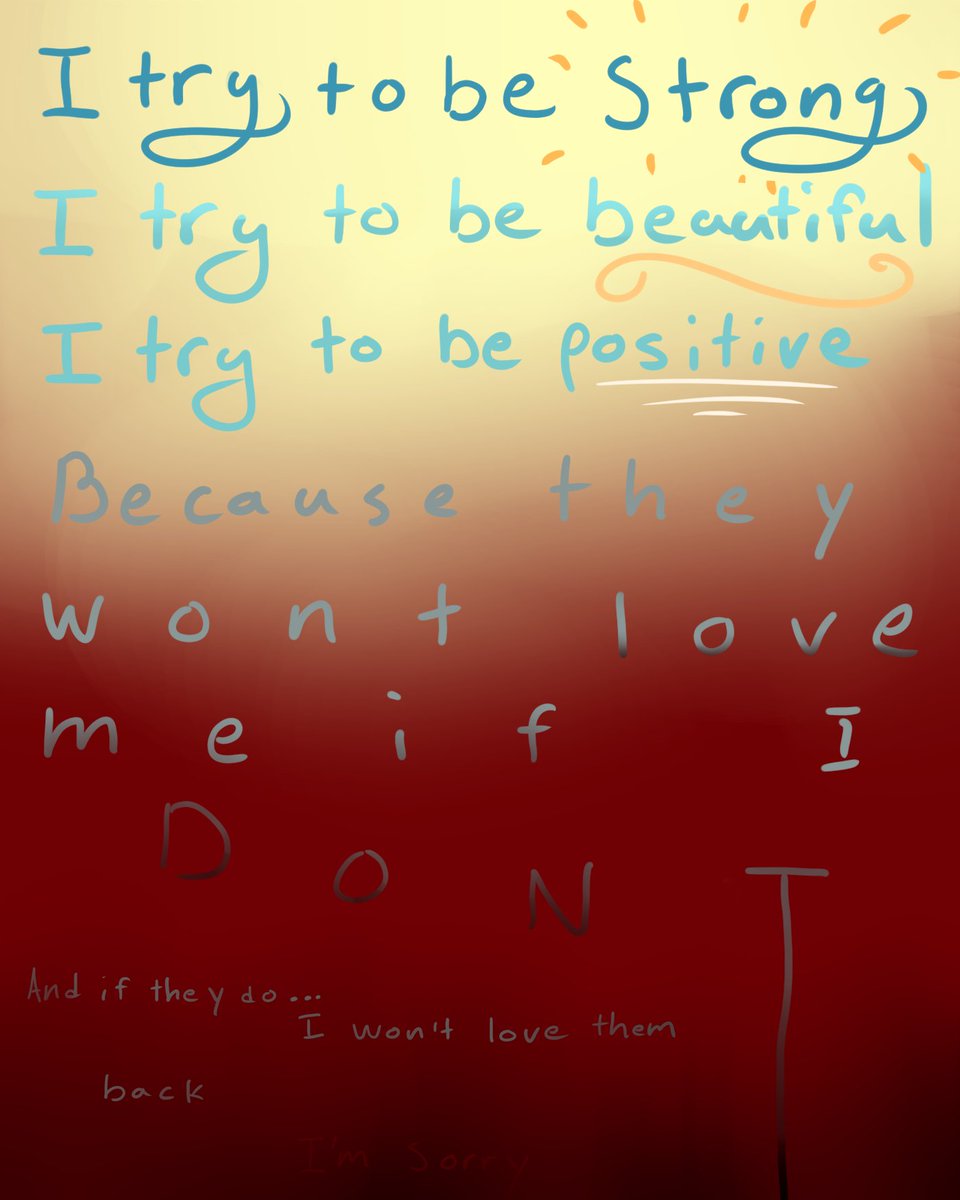 I try to be Strong
I try to be beautiful
I try to be positive
Because they
wont love
me if I
DONT
And if they do...
I won't love them
back
I'm Sorry